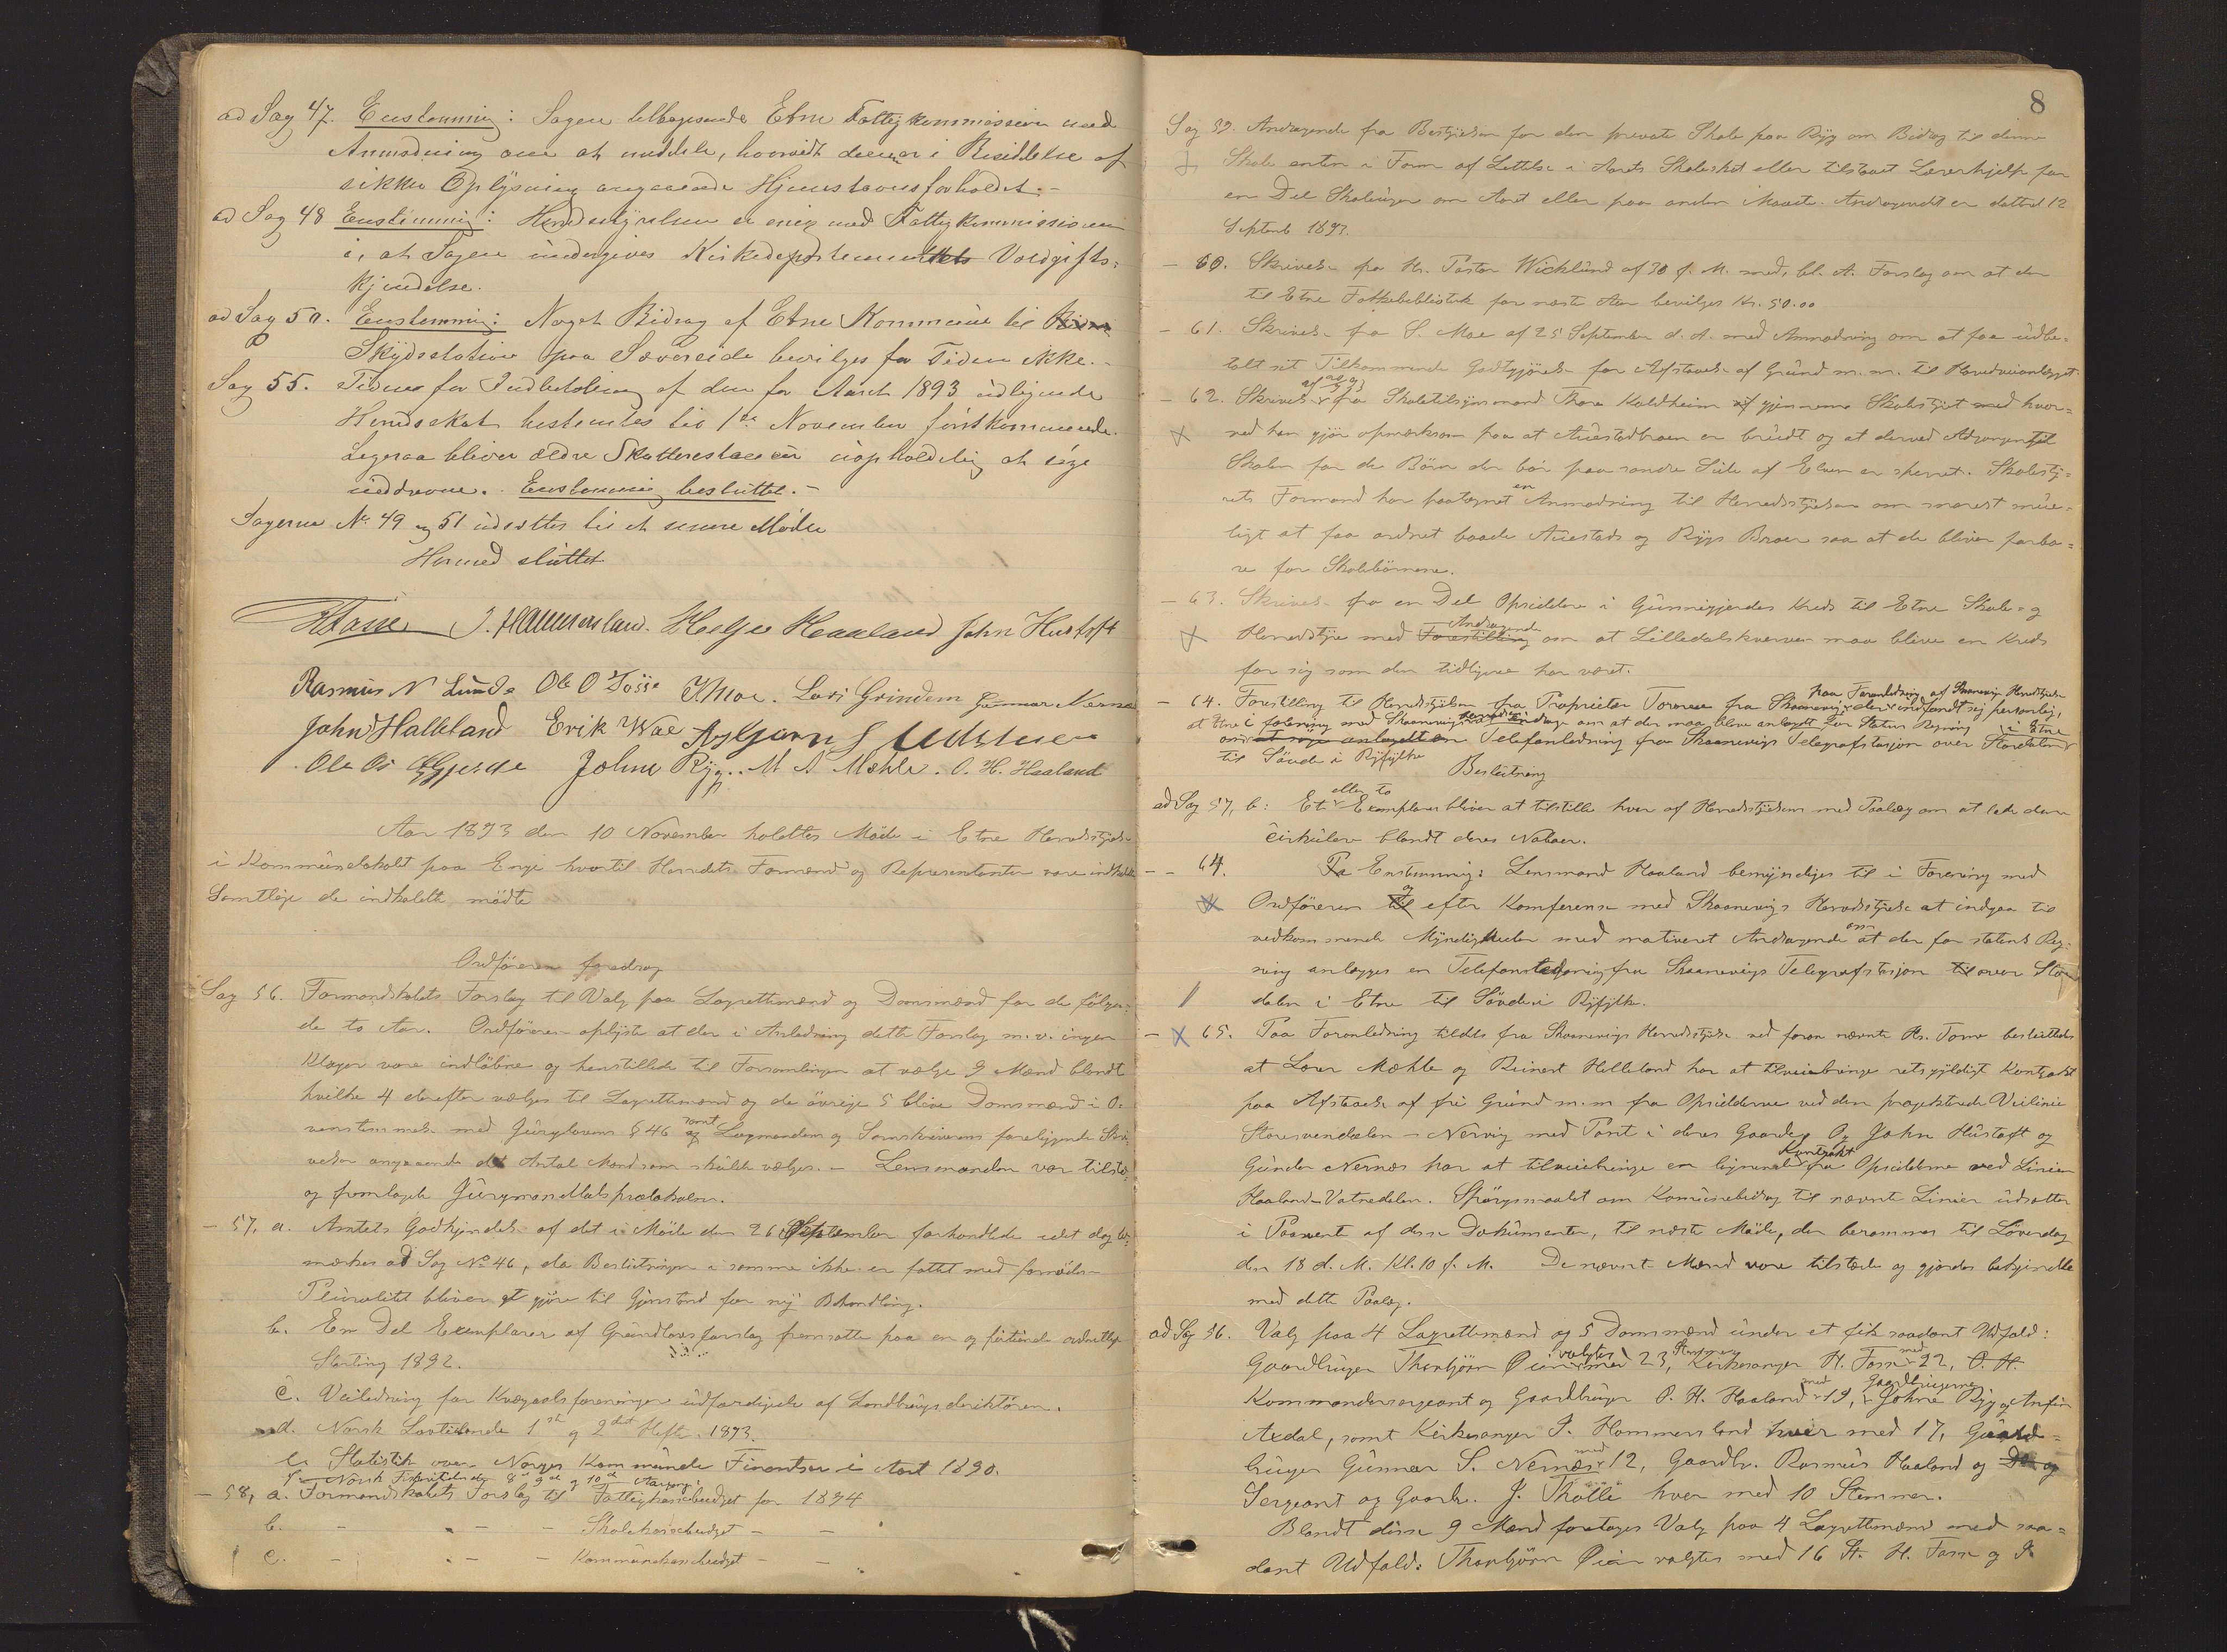 ad Sag 47. Enstemmig: Sagen tilbagesendes Etne Fattigkommission med
Anmodning om at meddele, hvorvidt denne er i Besiddelse af
sikker Oplysning angaaende Hjemstavnsforholdet.-
ad Sag 48 Enstemmig: Herredsstyrelsen er enig med Fattigkommissionen
i, at Sagen undergives Kirkedepartementets Voldgifts-
kjendelse.
ad Sag 50. Enstemmig: Noget Bidrag af Etne Kommune til
Skydsstation paa Sævereide bevilges for Tiden ikke.-
Sag 55. Tiden for Indbetaling af den for Aaret 1893 udlignede
Herredsskat bestemtes til 1ste November förstkommende.
Ligesaa bliver ældre Skatterestancer uopholdelig at söge
inddrevne. Enstemmig besluttet.-
Sagerne No 49 og 51 udsættes til et senere Möde
Hermed sluttet
H Fosse J. Hammersland. Helge Haaland John Hustoft
Rasmus N Lunde Ole O Tösse K Moe. Lars Grindem Gunnar Nernæs
John Halleland Erik Wae Asbjørn S
Ole Os Gjerde Johne Ryg. M A Mæhle. O. H. Haaland
Aar 1893 den 10 November holdtes Möde i Etne Herredsstyrelse
i Kommunelokalet paa Enge hvortil Herredets Formænd og Repræsentanter vare indkaldte
Samtlige de indkaldte mödte
Ordföreren foredrog
Sag 56. Formandskabets Forslag til Valg paa Lagrettemænd og Domsmænd for de fölgen-
de to Aar. Ordföreren oplyste at der i Anledning dette Forslag m. v. ingen
Klager vare indlöbne og henstillede til Forsamlingen at vælge 9 Mænd blandt
hvilke 4 derefter vælges til Lagrettemænd og de övrige 5 blive Domsmænd i O-
verenstemmelse med Jurylovens § 46 samt og Lagmandens og Sorenskriverens foreliggende Skri-
velser angaaende det Antal Mænd som skulde vælges. - Lensmanden var tilstede
og fremlagde Jurymandtalsprotokolen.
- 57, a. Amtets Godkjendelse af det i Möde den 26 September forhandlede idet dog be-
mærkes ad Sag No 46, da Beslutningen i samme ikke er fattet med fornöden
Pluralitet bliver at gjöre til Gjenstand for ny Behandling.
b. En Del Exemplarer af Grundlovsforslag fremsatte paa en og förtiende ordentlige
Storting 1892.
c. Veiledning for Kvægavlsforeninger udfærdiget af Landbrugsdirektören.
d. Norsk Lovtidende 1ste og 2det Hefte 1893.
e. Statistik over Norges Kommunale Finantser i Aaret 1890.
f. Norsk Fiskeritidende 8de 9de og 10de Aargang
- 58, a. Formandskabets Forslag til Fattigkassebudget for 1894
b. - - - Skolekassebudget - -
c. - - - Kommunekassebudget - -
8
Sag 59. Andragende fra Bestyrelsen for den private Skole paa Ryg om Bidrag til denne
Skole enten i Form af Lettelse i Aarets Skoleskat eller tilstaaet Lærerhjelp for
en Del Skoleuger om Aaret eller paa anden Maade. Andragendet er dateret 12
Septemb 1893.
- 60. Skrivelse fra Hr. Pastor Wicklund af 30 f. M. med, bl. A. Forslag om at der
til Etne Folkebibliothek for næste Aar bevilges Kr. 50.00
- 61. Skrivelse fra S. Moe af 25 September d. A. med Anmodning om at faa udbe-
talt sit Tilkommende Godtgjörelse for Afstaaelse af Grund m. m. til Hovedveianlægget.
- 62. Skrivelse fra Skoletilsynsmand Thore Kaldheim af gjennem Skolestyret med hvor-
ved han gjör opmærksom paa at Auestadbroen er brudt og at derved Adgangen til
Skolen for de Börn der bor paa söndre Side af Elven er sperret. Skolesty-
rets Formand har paategnet en Anmodning til Herredsstyrelsen om snarest mue-
ligt at faa ordnet baade Auestads og Rygs Broer saa at de bliver farba-
re for Skolebörnene.
- 63. Skrivelse fra en Del Opsiddere i Gunnegjerdes Kreds til Etne Skole- og
Herredsstyre med Andragende Forestilling om at Lilledalskverven maa blive en Kreds
for sig som den tidligere har været.
- 64. Forestilling til Herredsstyrelsen fra Proprietær Torvene fra Skaanevig, der paa Foranledning af Skaanevig Herredsstyrelse indfandt sig personlig,
at Etne i forening med Skaanevig andrage om at der maa blive anlagdt for Statens Regning
om at söge anlagdt en Telefonledning fra Skaanevigs Telegrafstasjon over Stordalen i Etne
til Sövde i Ryfylke
Beslutning
ad Sag 57, b: Et eller to Exemplarer bliver at tilstille hver af Herredsstyrelsen med Paalæg om at lade dem
cirkulere blandt deres Naboer.
- - 64. Enstemmig: Lensmand Haaland bemyndiges til i Forening med
Ordföreren og efter Konferense med Skaanevigs Herredsstyrelse at indgaa til
vedkommende Myndigheder med motiveret Andragende om at der for statens Reg-
ning anlægges en Telefonledning fra Skaanevigs Telegrafstasjon til over Stor-
dalen i Etne til Sövde i Ryfylke.
- 65. Paa Foranledning tildels fra Skaanevigs Herredsstyrelse ved foran nævnte Hr. Torve besluttedes
at Lærer Mæhle og Reinert Helleland har at tilveiebringe retsgyldigt Kontrakt
paa Afstaaelse af fri Grund m. m fra Opsidderne ved den projekterede Veilinie
Storesvendalen - Nervig med Pant i deres Gaarde. Og John Hustoft og
Gunder Nernæs har at tilveiebringe en lignende Kontrakt fra Opsidderne ved Linien
Haaland-Vatnedalen. Spörgsmaalet om Komunebidrag til nævnte Linier udsættes
i Paavent af disse Dokumenter, til næste Möde, der berammes til Löverdag
den 18 d. M. Kl. 10 f. M. De nævnte Mænd vare tilstede og gjordes bekjendte
med dette Paalæg.
ad Sag 56. Valg paa 4 Lagrettemænd og 5 Domsmænd under et fik saadant Udfald:
Gaardbruger Thorbjörn Øien valgtes med 23 Stemmer, Kirkesanger H. Fosse med 22, O. H.
Kommandersergeant og Gaardbruger O. H. Haaland med 19, Gaardbrugerne Johne Ryg og Anfin
Axdal, samt Kirkesanger I. Hammersland hver med 17, Gaard-
bruger Gunnar S. Nernæs med 12, Gaardbr. Rasmus Haaland og
Sergeant og Gaardbr. J. Tholle hver med 10 Stemmer.
Blandt disse 9 Mænd foretages Valg paa 4 Lagrettemænd med saa-
dant Udfald: Thorbjörn Øien valgtes med 16 St. H. Fosse og I.